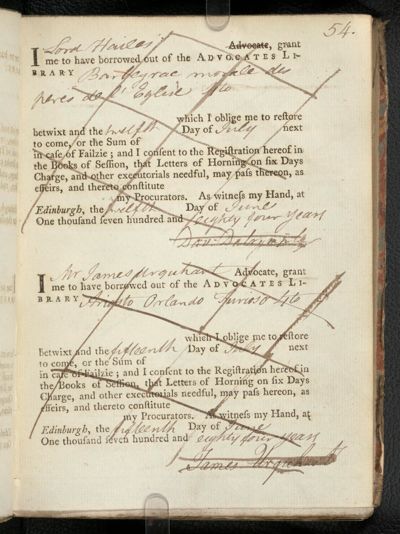 54.
I Lord Hailes Advocate, grant
me to have borrowed out of the ADVOCATES LI-
BRARY Barbeyrac morale des
peres de l'Eglise 4to
which I oblige me to reſtore
betwixt and the twelfth Day of July next
to come, or the Sum of
in caſe of Failzie; and I conſent to the Regiſtration hereof in
the Books of Seſſion, that Letters of Horning on ſix Days
Charge, and other executorials needful, may paſs thereon, as
effeirs, and thereto conſtitute
my Procurators. As witneſs my Hand, at
Edinburgh, the twelfth Day of June
One thouſand ſeven hundred and eighty four years
Dav: Dalrymple
I Mr James Urquhart Advocate, grant
me to have borrowed out of the ADVOCATES LI-
BRARY Ariosto Orlando Furioso 4to
which I oblige me to reſtore
betwixt and the fifteenth Day of July next
to come, or the Sum of
in caſe of Failzie; and I conſent to the Regiſtration hereof in
the Books of Seſſion, that Letters of Horning on ſix Days
Charge, and other executorials needful, may paſs hereon, as
effeirs, and thereto conſtitute
my Procurators. As witneſs my Hand, at
Edinburgh, the fifteenth Day of June
One thouſand ſeven hundred and eighty four years
James Urquhart